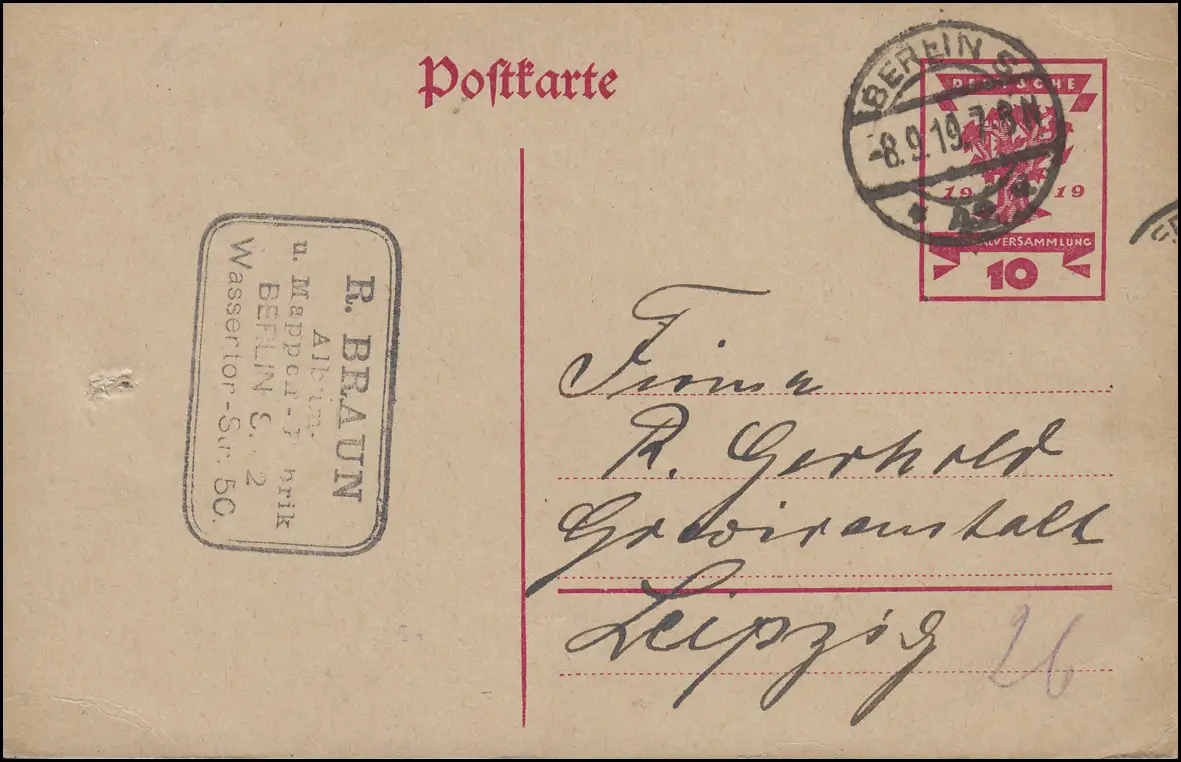 Postkarte
BERLIN S.
-8.9.19.7-8N
* 42 *
DEUTSCHE
1919
NATIONALVERSAMMLUNG
10
R. BRAUN
Album-
u. Mappen-Fabrik
BERLIN S. 42
Wassertor-Str. 50.
Firma
R. Gerhold
Gravieranstalt
Leipzig
26